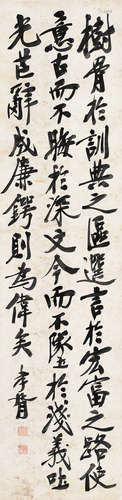 樹骨於訓典之區選言於宏富之路使
意古而不晦於深文今而不隊於淺義吐
光芒辭成廉鍔則為偉矣 李瑞清